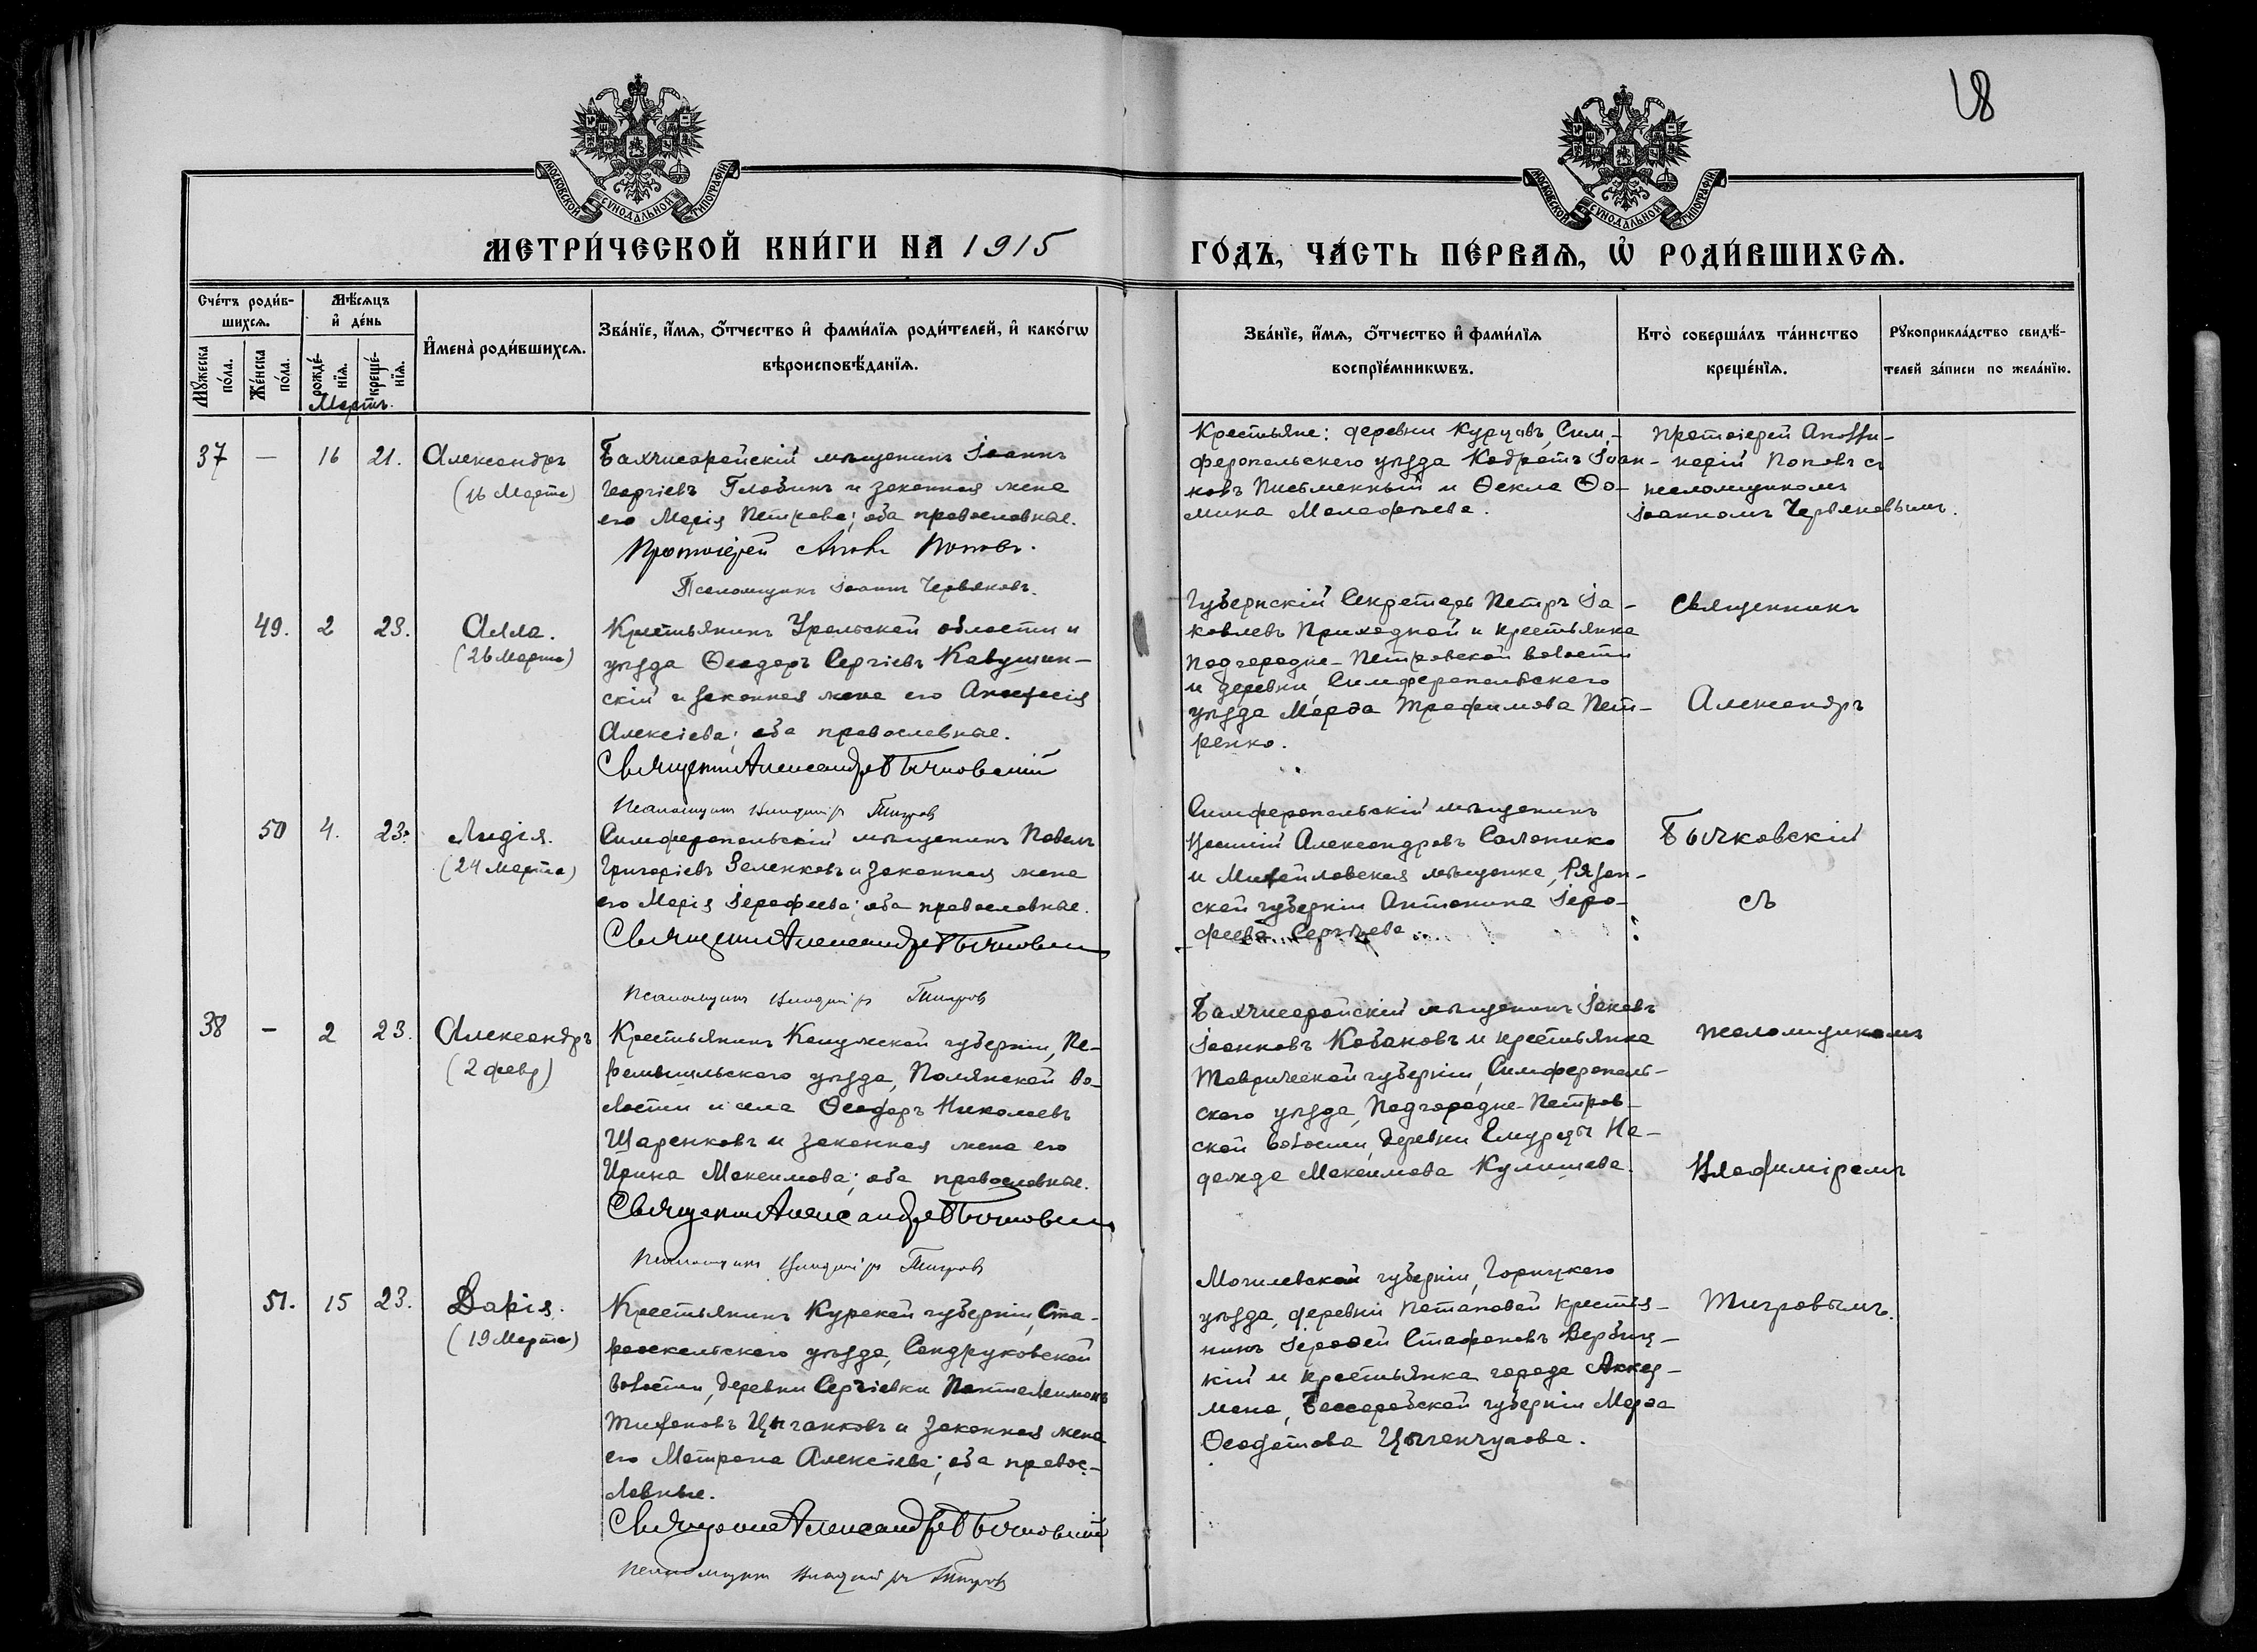 18
МОСКОВСКОЙ СѴНОДАЛЬНОЙ ТИПОГРАФІИ
МОСКОВСКОЙ СѴНОДАЛЬНОЙ ТИПОГРАФІИ
МЕТРИ́ЧЕСКОЙ КНИ́ГИ НА 1915
ГО́ДЪ, ЧА́СТЬ ПЕ́РВАЯ, Ѡ҆ РОДИ́ВШИХСЯ.
Сче́тъ роди́в-
шихся.
Мꙋ́жеска по́ла.
Же́нска по́ла.
Мѣ́сяцъ
и҆ де́нь
рожде́-
нїя.
креще́-
нїя.
И҆мена̀ роди́вшихся.
Зва́нїе, и҆́мя, ѻ҆́тчество и҆ фами́лїя роди́телей, и҆ како́гѡ
вѣроисповѣ́данїя.
Зва́нїе, и҆́мя, ѻ҆́тчество и҆ фами́лїя
воспрїе́мникѡвъ.
Кто̀ соверша́лъ та́инство
креще́нїя.
Рꙋкоприкла́дство свидѣ́-
телей за́писи по жела́нїю.
Мартъ.
37 — 16 21. Александръ
(16 Марта)
Бахчисарайскій мѣщанинъ Іоаннъ
Георгіевъ Глобинъ и законная жена
его Марія Петрова; оба православные.
Протоіерей Попов.
Псаломщикъ Іоаннъ Червяковъ.
Крестьяне: деревни Курцовъ, Сим-
феропольскаго уѣзда Кодратъ Іоан-
новъ Письменный и Ѳекла Ѳо-
мина Малафѣева.
Протоіерей Аполли-
нарій Поповъ съ
псаломщикомъ
Іоанномъ Червяковымъ.
49. 2 23. Алла.
(26 Марта)
Крестьянинъ Уральской области и
уѣзда Ѳеодоръ Сергіевъ Кавушин-
скій и законная жена его Анастасія
Алексіева; оба православные.
Священникъ Александръ Бычковскій
Псаломщикъ Владиміръ Тигров
Губернскій Секретарь Петръ Іа-
ковлевъ Приходной и крестьянка
Подгородне-Петровской волости
и деревни, Симферопольскаго
уѣзда Марѳа Трофимова Пет-
ренко.
Священникъ
Александръ
50 4. 23. Лидія.
(24 Марта)
Симферопольскій мѣщанинъ Павелъ
Григоріевъ Зеленковъ и законная жена
его Марія Іерофеева; оба православные.
Священникъ Александръ Бычковскій
Псаломщикъ Владиміръ Тигров
Симферопольскій мѣщанинъ
Александровъ Салонико
и Михайловская мѣщанка, Рязан-
ской губерніи Антонина Іеро-
феева Сергѣева
Бычковскій
съ
38 — 2 23. Александръ
(2 февр)
Крестьянинъ Калужской губерніи, Пе-
ремышльскаго уѣзда, Полянской во-
лости и села Ѳеодоръ Николаевъ
Щаренковъ и законная жена его
Ирина Максимова; оба православные.
Священникъ Александръ Бычковскій
Псаломщикъ Владиміръ Тигров
Бахчисарайскій мѣщанинъ Іаковъ
Іоанновъ Кабаковъ и крестьянка
Таврической губерніи, Симферополь-
скаго уѣзда, Подгородне-Петров-
ской волости, деревни Емурцы На-
дежда Максимова Кулишева.
псаломщикомъ
Владиміромъ
51. 15 23. Дарія.
(19 Марта)
Крестьянинъ Курской губерніи, Ста-
рооскольскаго уѣзда, Сондруковской
волости, деревни Сергіевки Пантелеимонъ
Тихоновъ Цыганковъ и законная жена
его Матрона Алексіева; оба правос-
лавные.
Священникъ Александръ Бычковскій
Псаломщикъ Владиміръ Тигров
Могилевской губерніи, Горицкаго
уѣзда, деревни Потаповой крестья-
нинъ Іероѳей Стефановъ Вербиц-
кій и крестьянка города Аккер-
мана, Бессарабской губерніи Марѳа
Ѳеодотова Цыганчукова.
Тигровымъ.